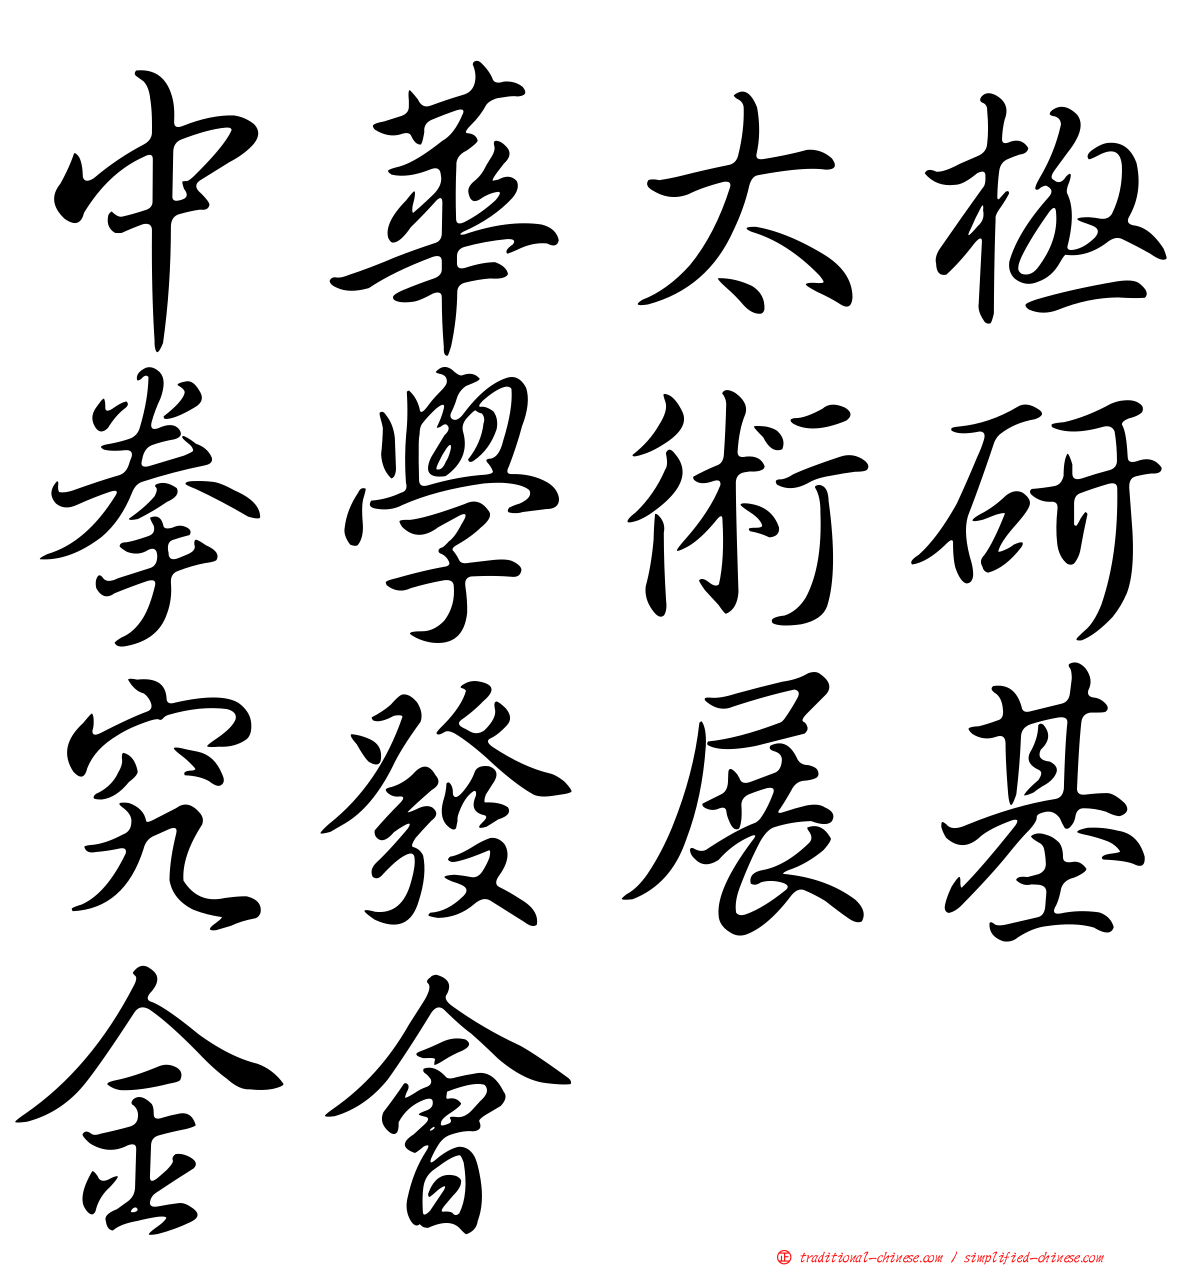 中華太極
拳學術研
究發展基
金會
正 traditional-chinese.com / simplified-chinese.com